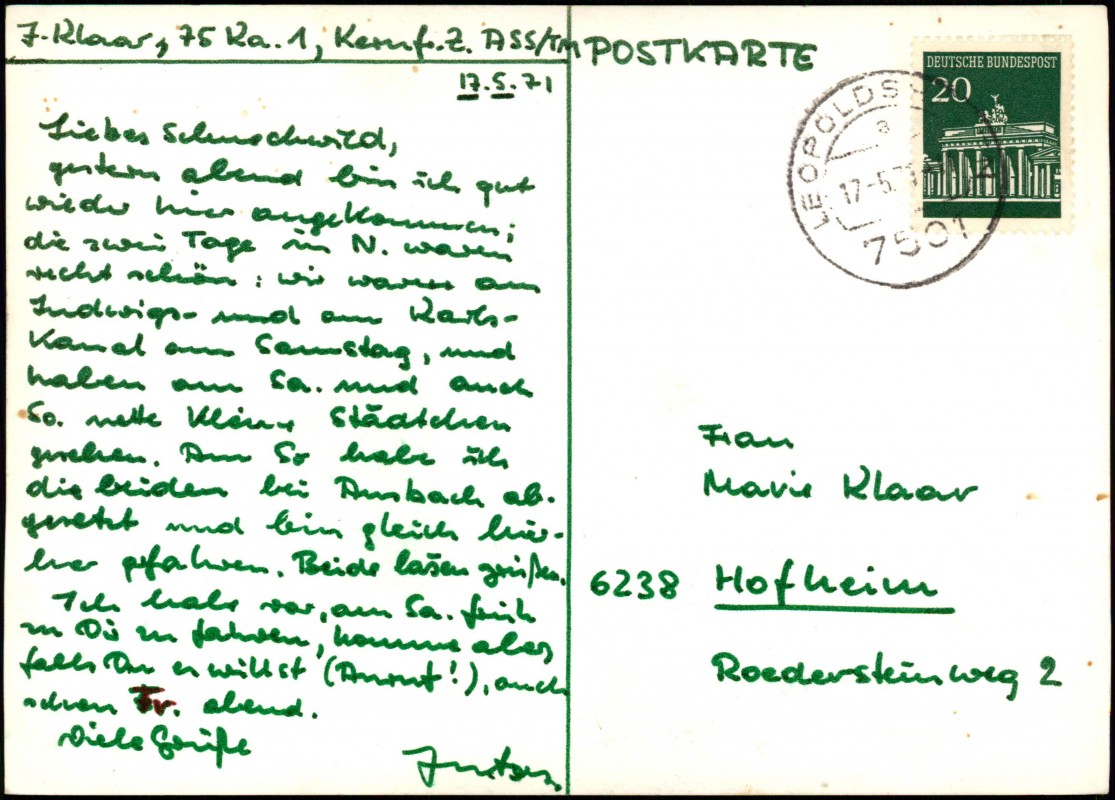 J. Klaar, 75 Ka. 1, Kernf. Z. ASS/TM
17.5.71
Liebes Schnuckwild,
gestern abend bin ich gut
wieder hier angekommen;
die zwei Tage in N. waren
recht schön: wir waren am
Ludwigs- und am Karls-
Kanal am Samstag, und
haben am Sa. und auch
So. nette kleine Städtchen
gesehen. Am So habe ich
die beiden bei Ansbach ab-
gesetzt und bin gleich hier-
her gefahren. Beide lassen grüßen.
Ich habe vor, am Sa. früh
zu Dir zu fahren, komme aber,
falls Du es willst (Anruf!), auch
schon Fr. abend.
Viele Grüße
POSTKARTE
DEUTSCHE BUNDESPOST
20
LEOPOLDSH
a
17-5.71
7501
Frau
Marie Klaar
6238 Hofheim
Roedersteinweg 2